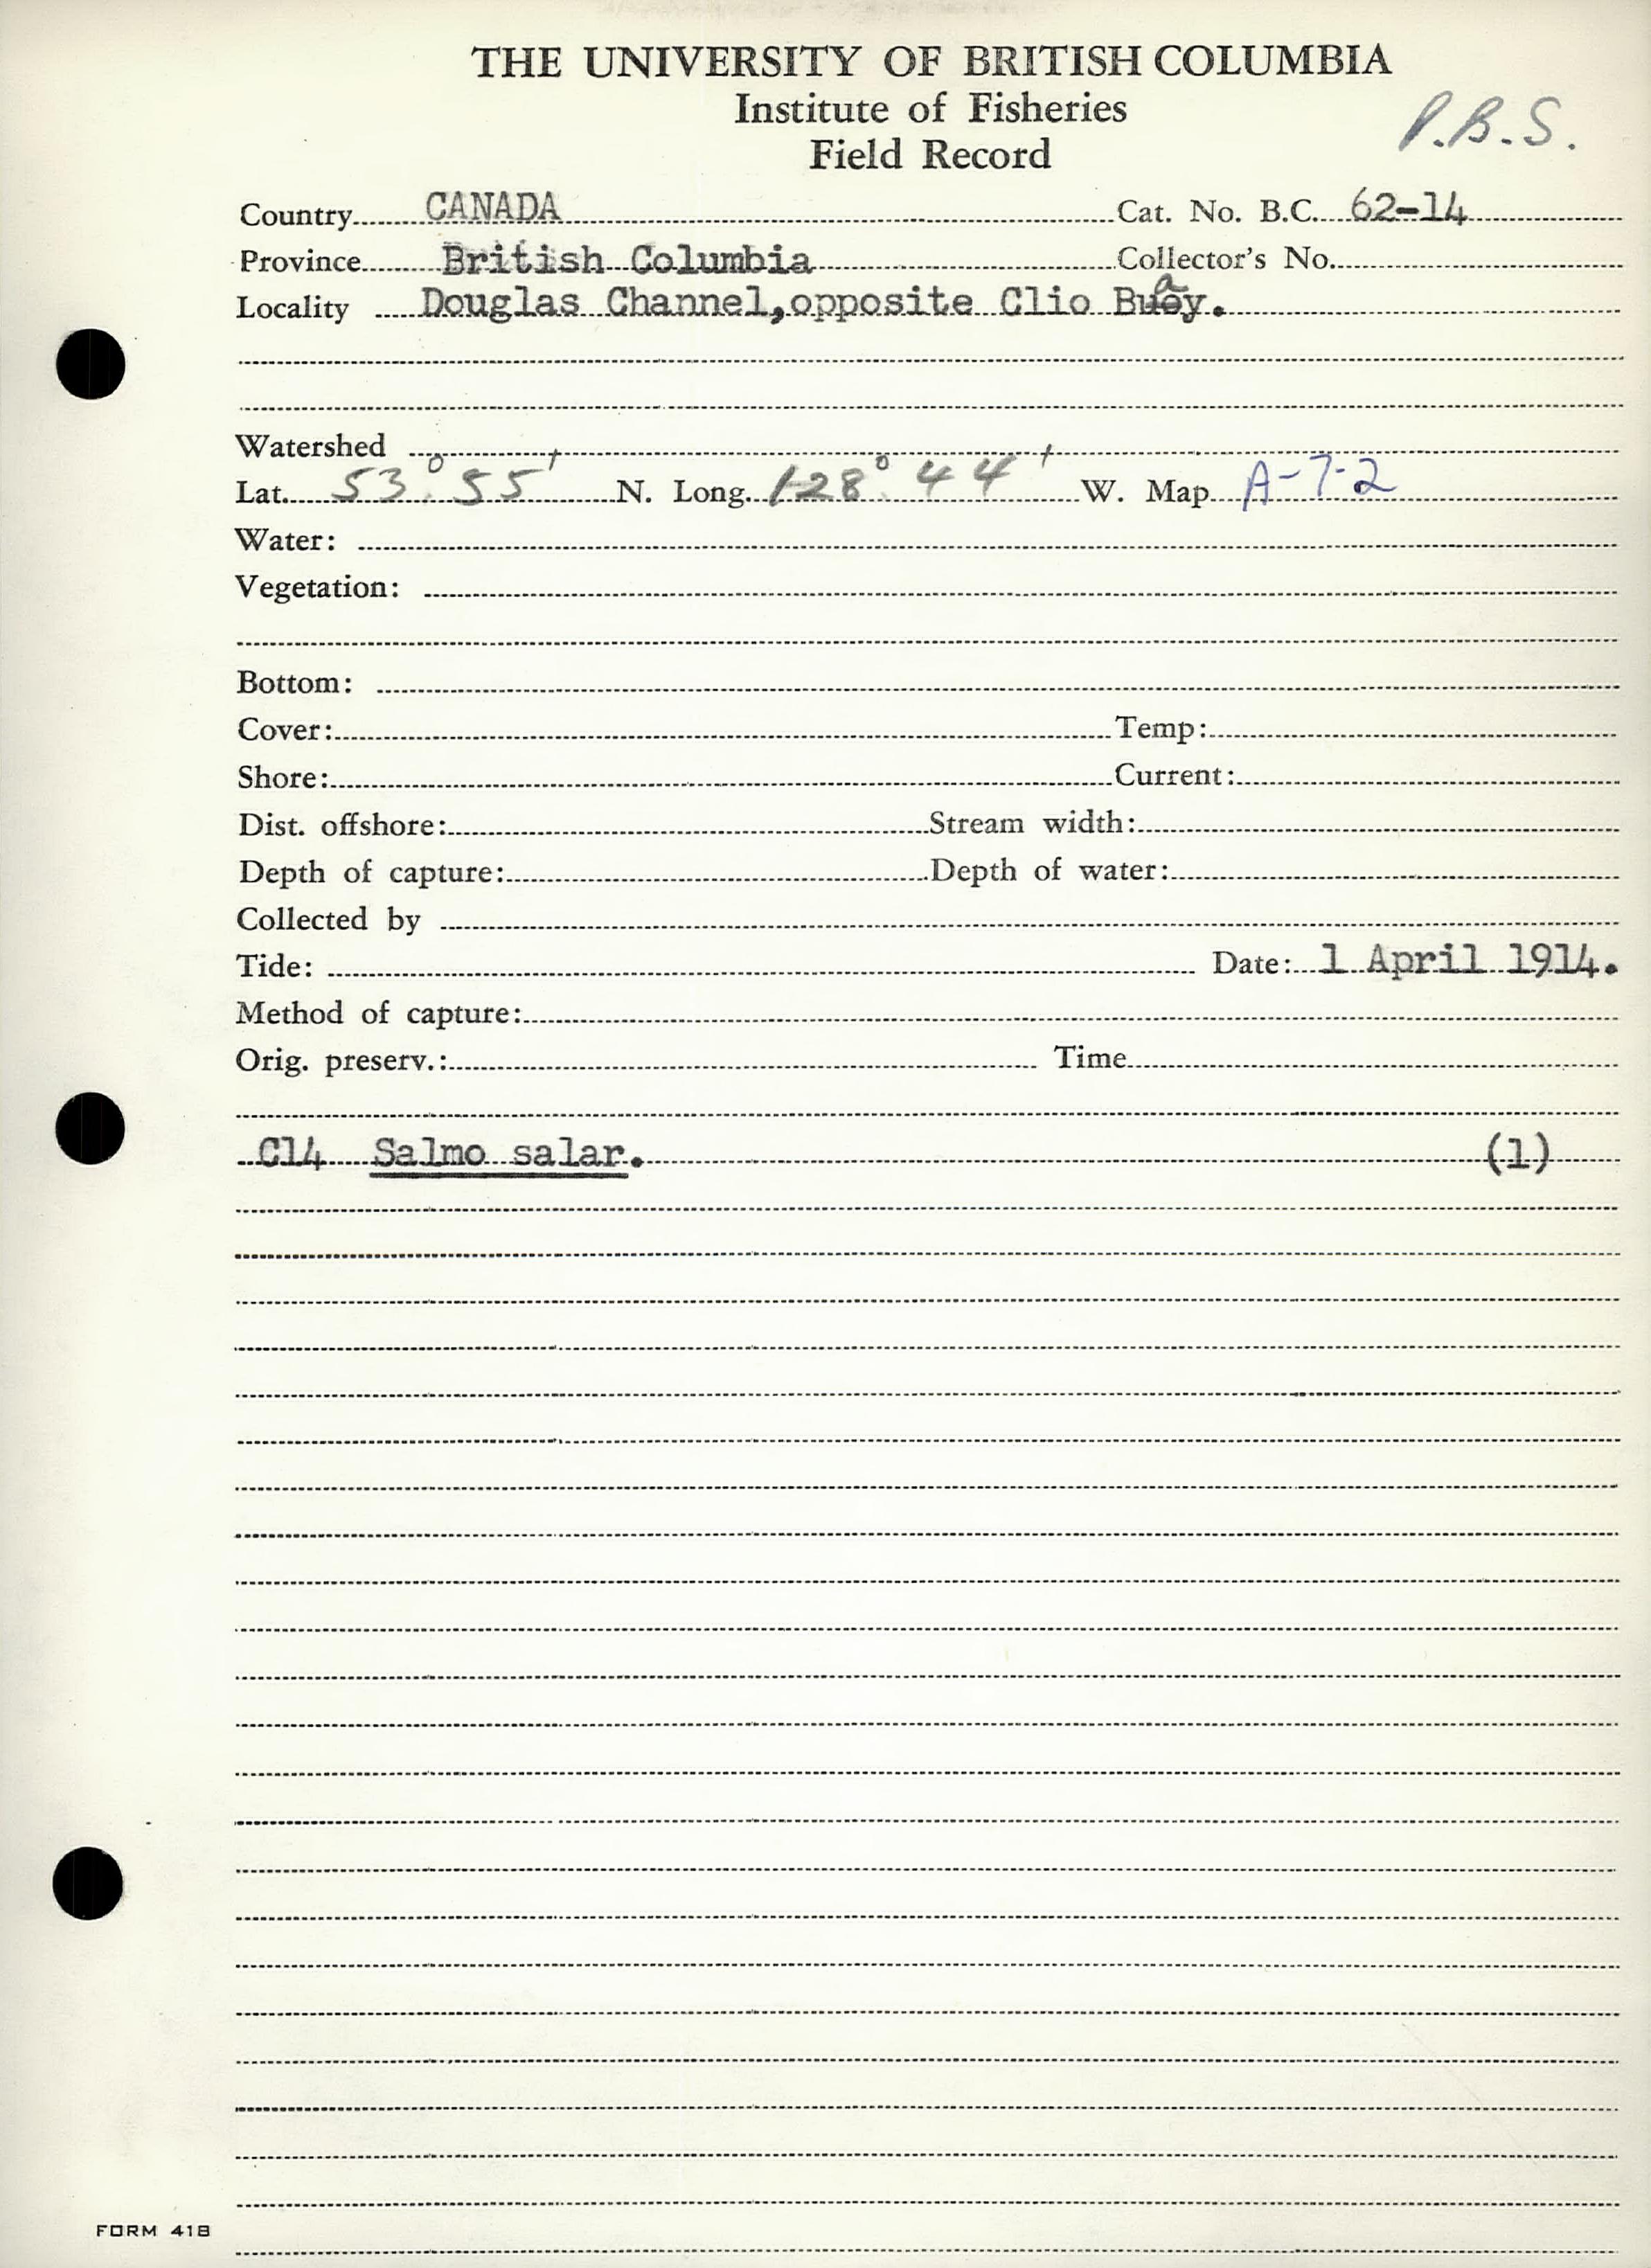 THE UNIVERSITY OF BRITISH COLUMBIA
Institute of Fisheries
P.B.S.
Field Record
Country CANADA Cat. No. B.C. 62-14
Province British Columbia Collector's No.
Locality Douglas Channel, opposite Clio Bay.
Watershed
Lat. 53° 55' N. Long. 128° 44' W. Map A-7-2
Water:
Vegetation:
Bottom:
Cover: Temp:
Shore: Current:
Dist. offshore: Stream width:
Depth of capture: Depth of water:
Collected by
Tide: Date: 1 April 1914.
Method of capture:
Orig. preserv.: Time
C14 Salmo salar. (1)
FORM 418